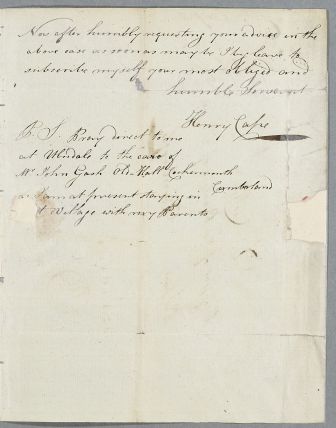 Now after humbly requesting your advice in the
above case as soon as may be I beg leave to
subscribe myself your most obliged and
humble Servant
Henry Cape
P. S. Pray direct to me
at Uldale to the care of
Mr John Gash Hall Cockermouth
Cumberland
as I am at present staying in
Village with my Parents